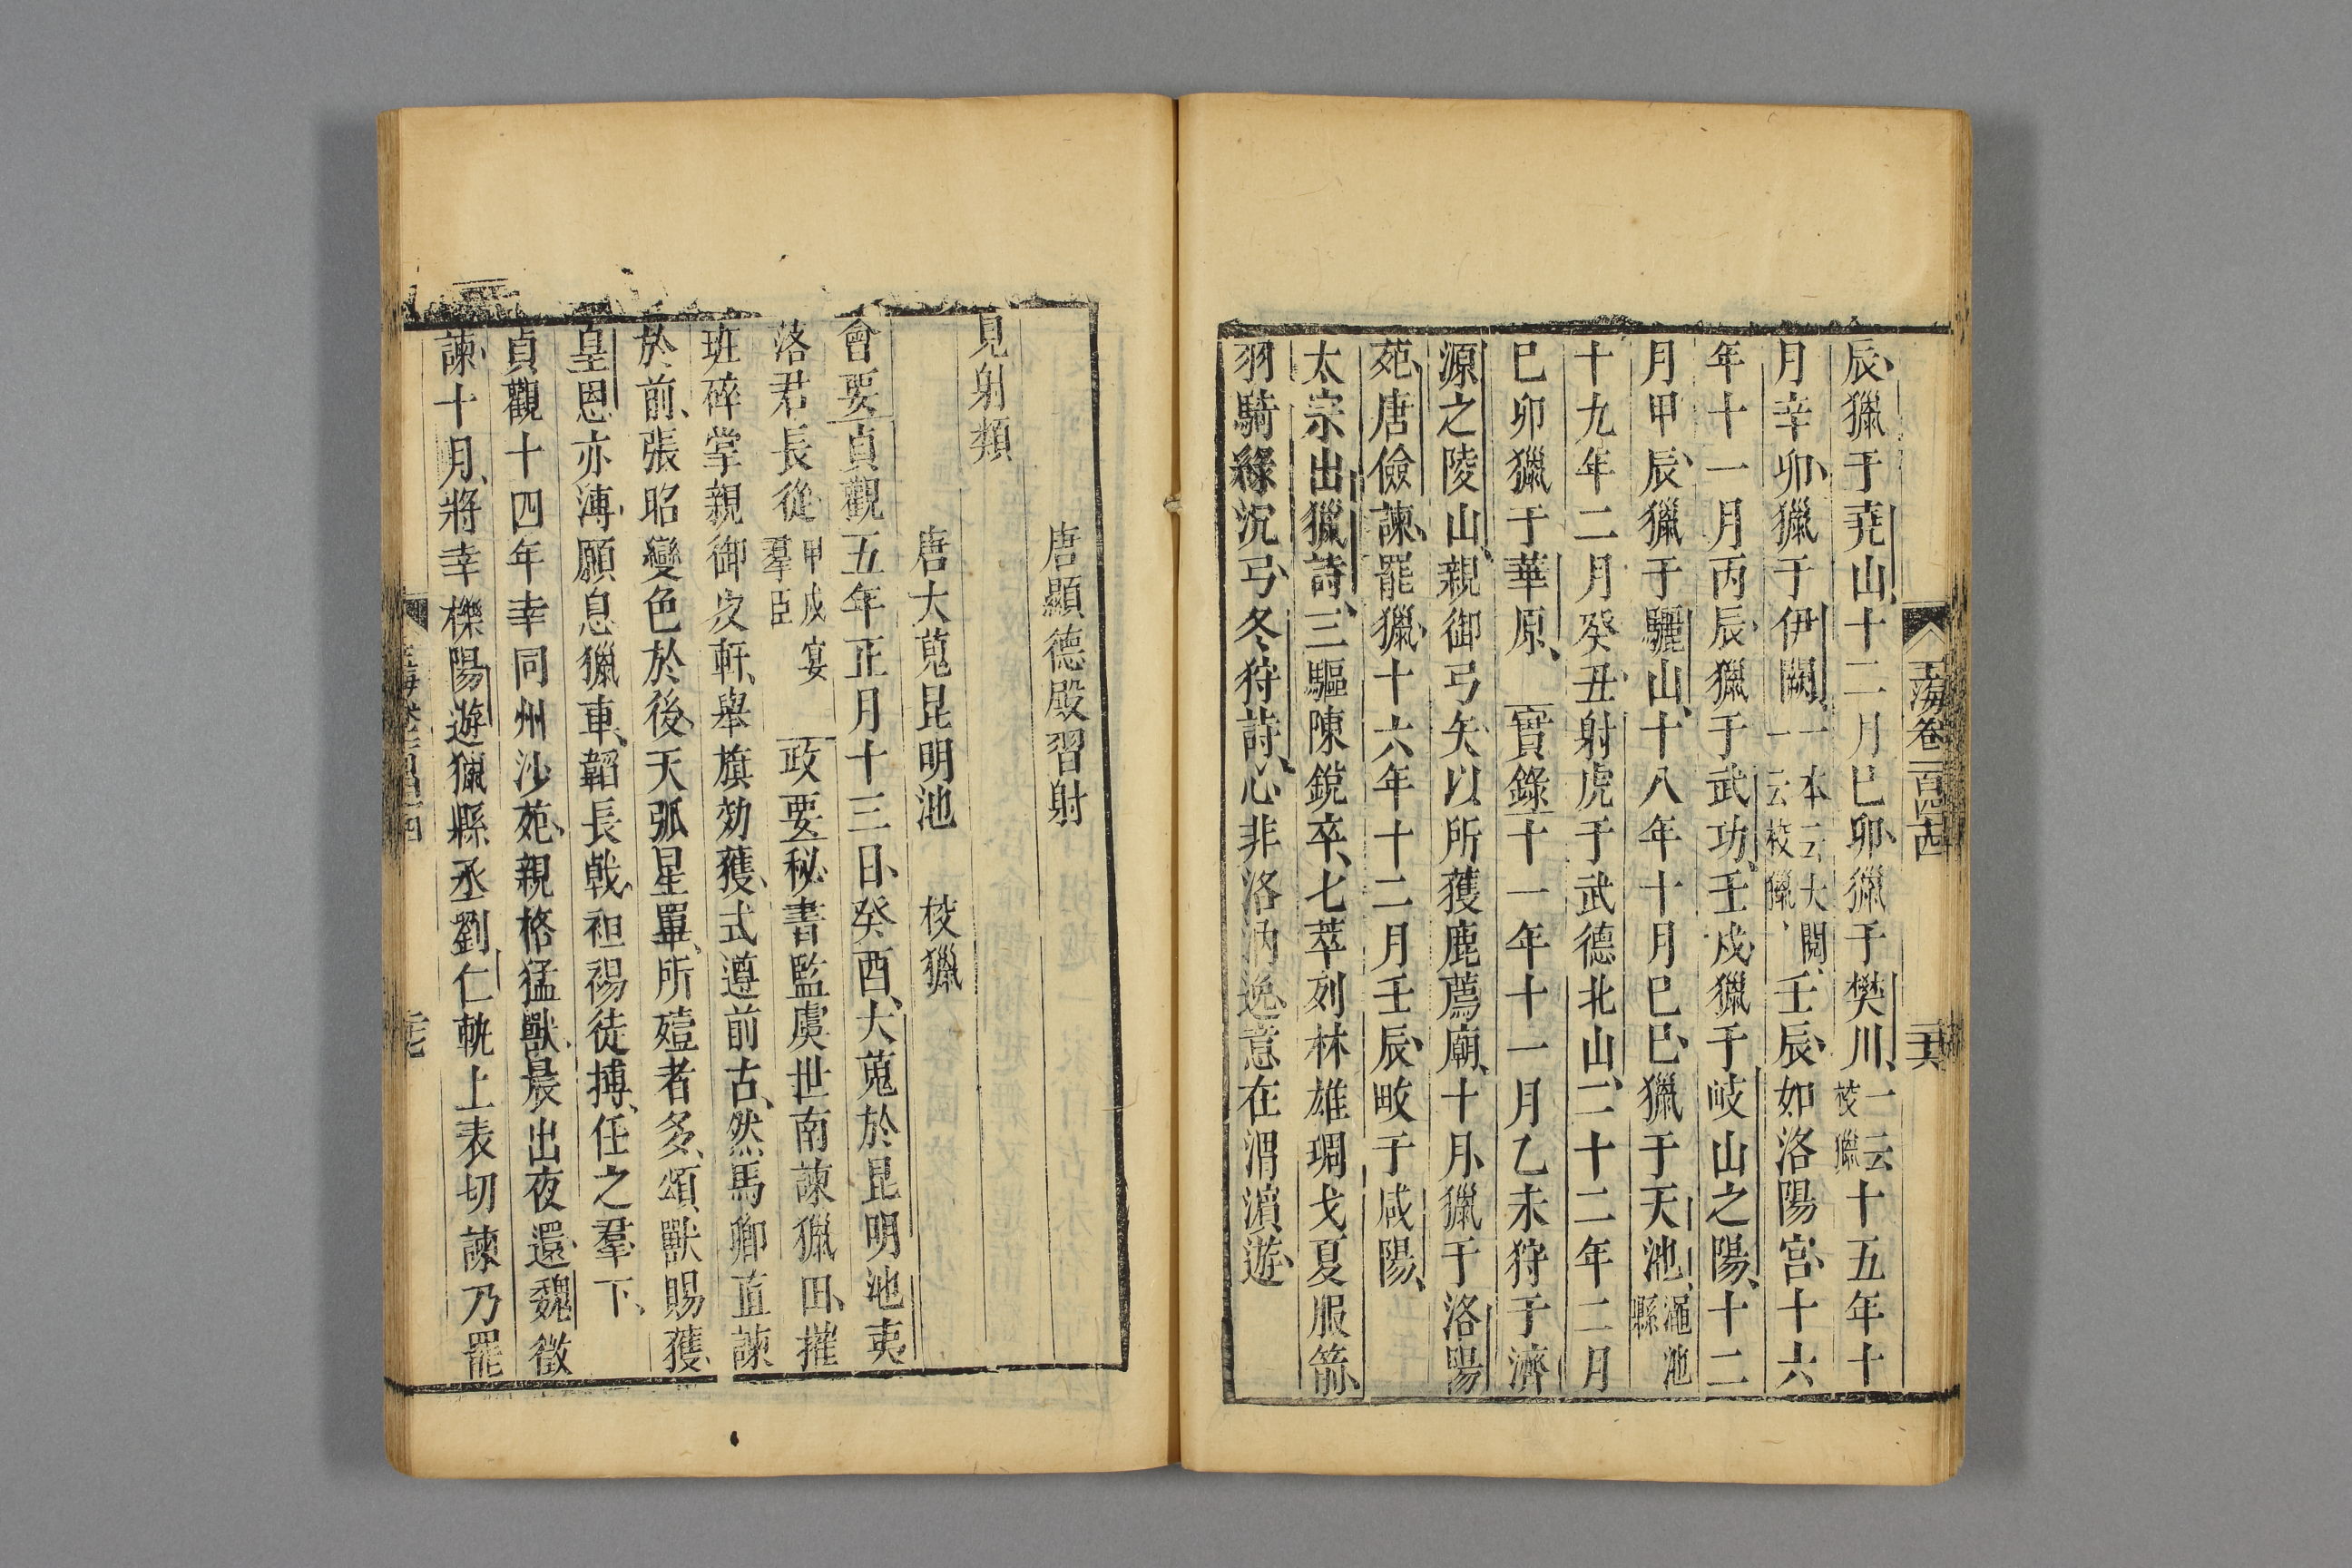 玉海卷一百四十四 三十六
辰獵于堯山十二月己卯獵于樊川一云校獵十五年十
月辛卯獵于伊闕一本云大閱一云校獵壬辰如洛陽宮十六
年十一月丙辰獵于武功壬戌獵于岐山之陽十二
月甲辰獵于驪山十八年十月己巳獵于天池澠池縣
十九年二月癸丑射虎于武德北山二十二年二月
己卯獵于華原實錄十一年十一月乙未狩于濟
源之陵山親御弓矢以所獲鹿薦廟十月獵于洛陽
苑唐儉諫罷獵十六年十二月壬辰畋于咸陽
太宗出獵詩三驅陳銳卒七萃列林雄琱戈夏服箭
羽騎綠沉弓冬狩詩心非洛汭逸意在渭濱遊
唐顯德殿習射
見射類
唐大蒐昆明池 校獵
會要貞觀五年正月十三日癸酉大蒐於昆明池夷
落君長從甲戌宴羣臣 政要秘書監虞世南諫獵田摧
班碎掌親御皮軒舉旗効獲式遵前古然馬卿直諫
於前張昭變色於後天弧星罼所殪者多頒獸賜獲
皇恩亦溥願息獵車韜長戟袒裼徒搏任之羣下
貞觀十四年幸同州沙苑親格猛獸晨出夜還魏徵
諫十月將幸櫟陽遊獵縣丞劉仁軌上表切諫乃罷